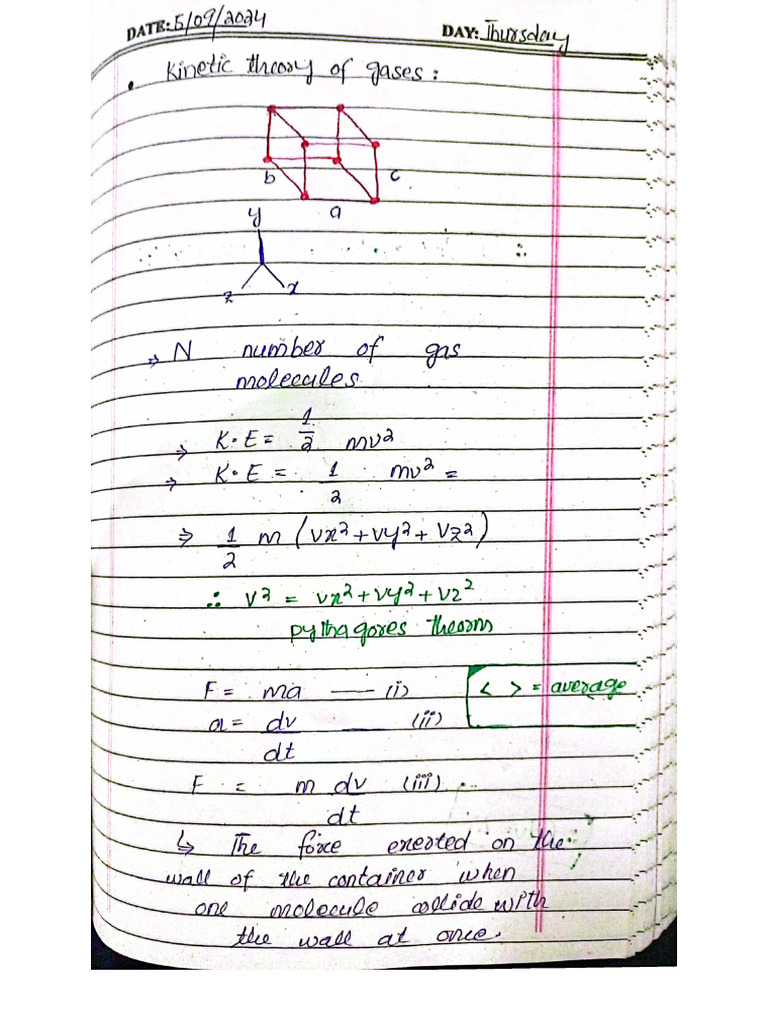 DATE: 5/09/2024 DAY: Thursday
• Kinetic theory of gases:
b c
y a
z x
⇒ N number of gas
molecules.
⇒ K.E = 1/2 mv²
⇒ K.E = 1/2 mv² =
⇒ 1/2 m (vx² + vy² + vz²)
∴ v² = vx² + vy² + vz²
pythagores theorm
F = ma —— (i) < > = average
a = dv/dt —— (ii)
F = m dv/dt (iii)
↳ The force exerted on the
wall of the container when
one molecule collide with
the wall at once.